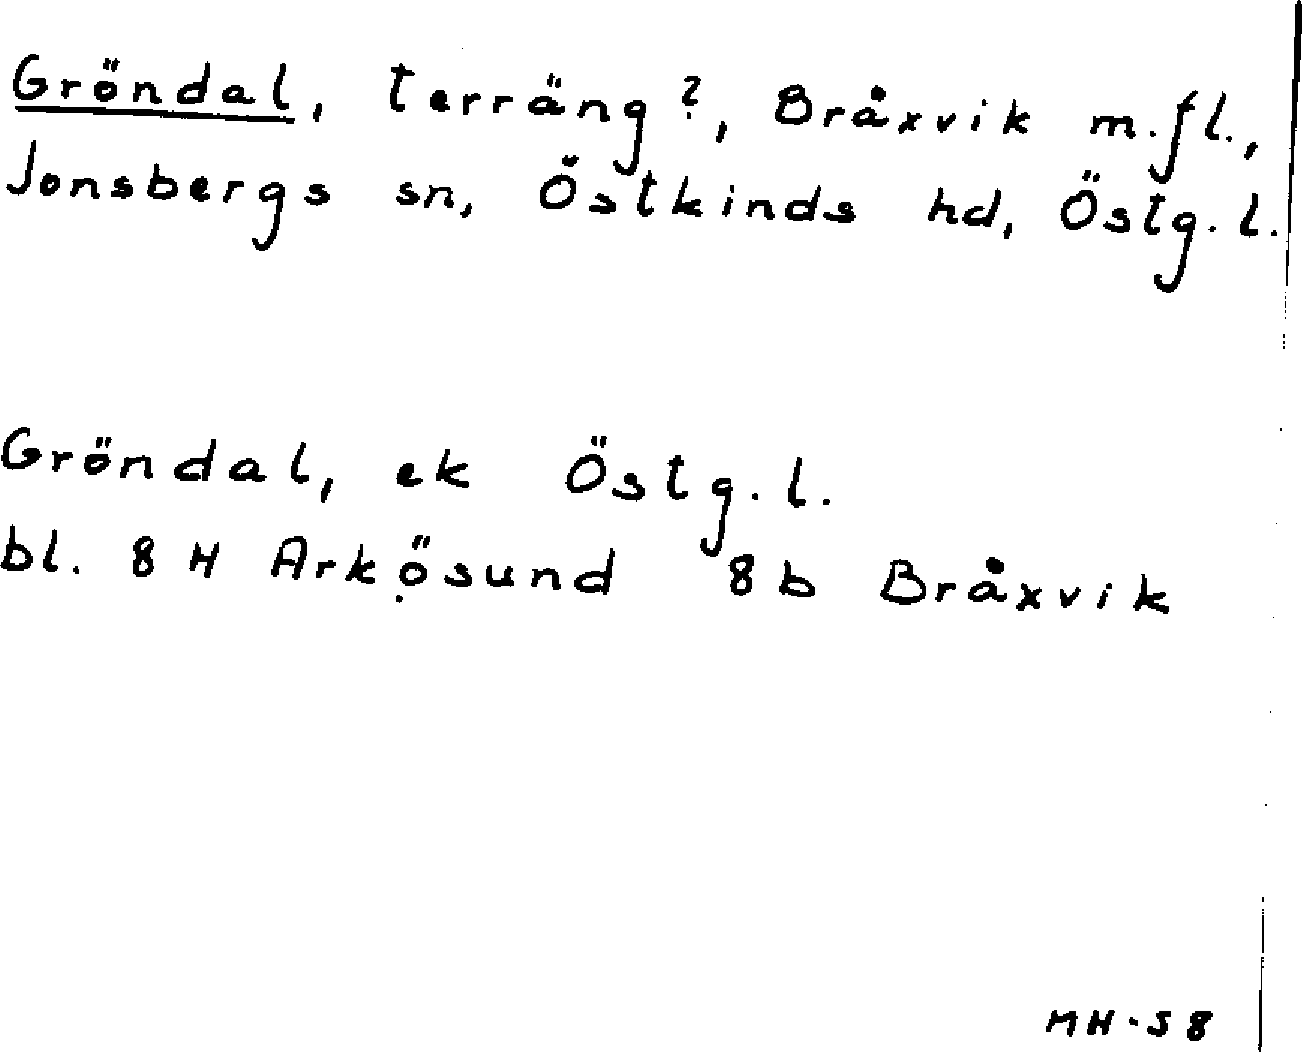 Gröndal, terräng?, Bråxvik m.fl.,
Jonsbergs sn, Östkinds hd, Östg.l.
Gröndal, ek Östg.l.
bl. 8 H Arkösund 8b Bråxvik
MH-58